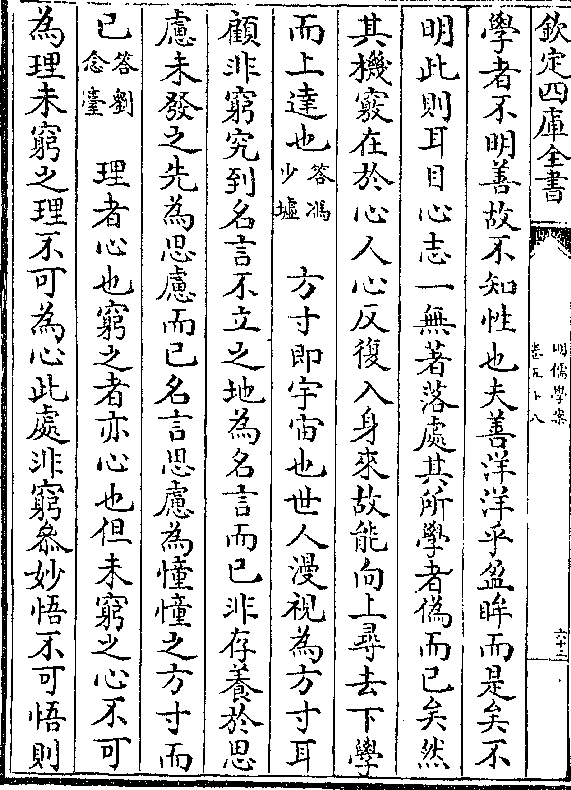 欽定四庫全書
明儒學案
卷五十八
六十三
學者不明善故不知性也夫善洋洋乎盈眸而是矣不
明此則耳目心志一無著落處其所學者偽而已矣然
其機竅在於心人心反復入身來故能向上尋去下學
而上達也答馮少墟 方寸即宇宙也世人漫視為方寸耳
顧非窮究到名言不立之地為名言而已非存養於思
慮未發之先為思慮而已名言思慮為憧憧之方寸而
已答劉念臺 理者心也窮之者亦心也但未窮之心不可
為理未窮之理不可為心此處非窮叅妙悟不可悟則